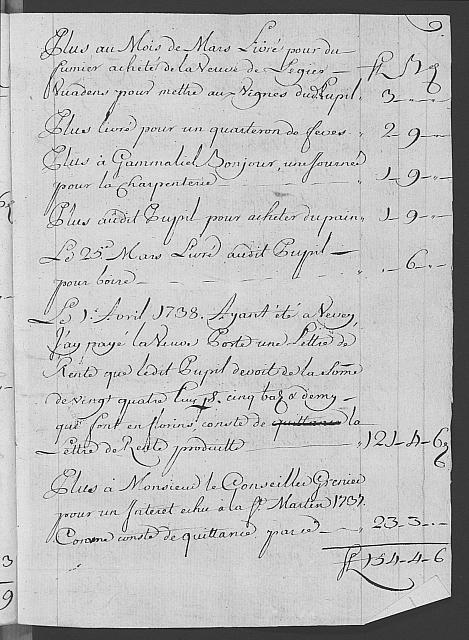 Plus au Mois de Mars Livré pour du
fumier acheté de la Veuve de Legier
Vuadens pour mettre au Vignes dud Pupil 3 - " - "
Plus livré pour un quarteron de feves " 2 - 9 - "
Plus à Gammaliel Bonjour, une Journée
pour la Charpenterie " 1 - 9 - "
Plus audit Pupil pour acheter du pain " 1 - 9 - "
Le 25e Mars Livré audit Pupil
pour boire " " - 6 - "
Le 1r Avril 1738. Ayant été a Vevey
J'ay payé la Veuve Porte une Lettre de
Rente que ledit Pupil devoit de la Some
de vingt quatre cinq baz & demy
que font en florins, conste de quittance la
Lettre de Rente produitte " 121 - 4 - 6
Plus à Monsieur le Conseiller Grenier
pour un Interet echu a la St. Martin 1737.
Comme conste de quittance par cé " 23 - 3 - "
fl 154 - 4 - 6
3
9